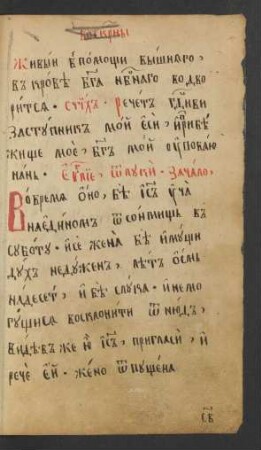 Живыи в̾помощи вышняго,
въ кровѣ бг҃а нб҃наго водво
рится· сти́хъ· Речетъ гд҃иви
Заступникъ мо́й есѝ, и҆прибѣ
жище моѐ, бг҃ъ мо́й и҆ упова́ю
нань· Еѵг҃лїе, ѿ луки̑· Зача́ло,
Во время ѻ҆́но, бѣ̀ іс҃ъ уч҃а
на є҆ди́номъ ѿ со́нмищь въ
субо́ту· и҆ се жена̀ бѣ̀ и҆му́щи
ду́хъ неду́женъ, лѣ́тъ ѻ҆́смь
на́десеть, и҆ бѣ̀ слу́ка· и҆ немо
гу́щися восклони́ти ѿню́дъ,
ви́дѣвъ же ю҆̀ іс҃ъ, пригласѝ, и҆
речѐ є҆́й· же́но ѿпуще́на